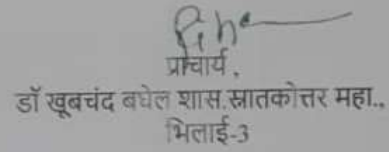 प्राचार्य,
डॉ खूबचंद बघेल शास.स्नातकोत्तर महा.,
भिलाई-3